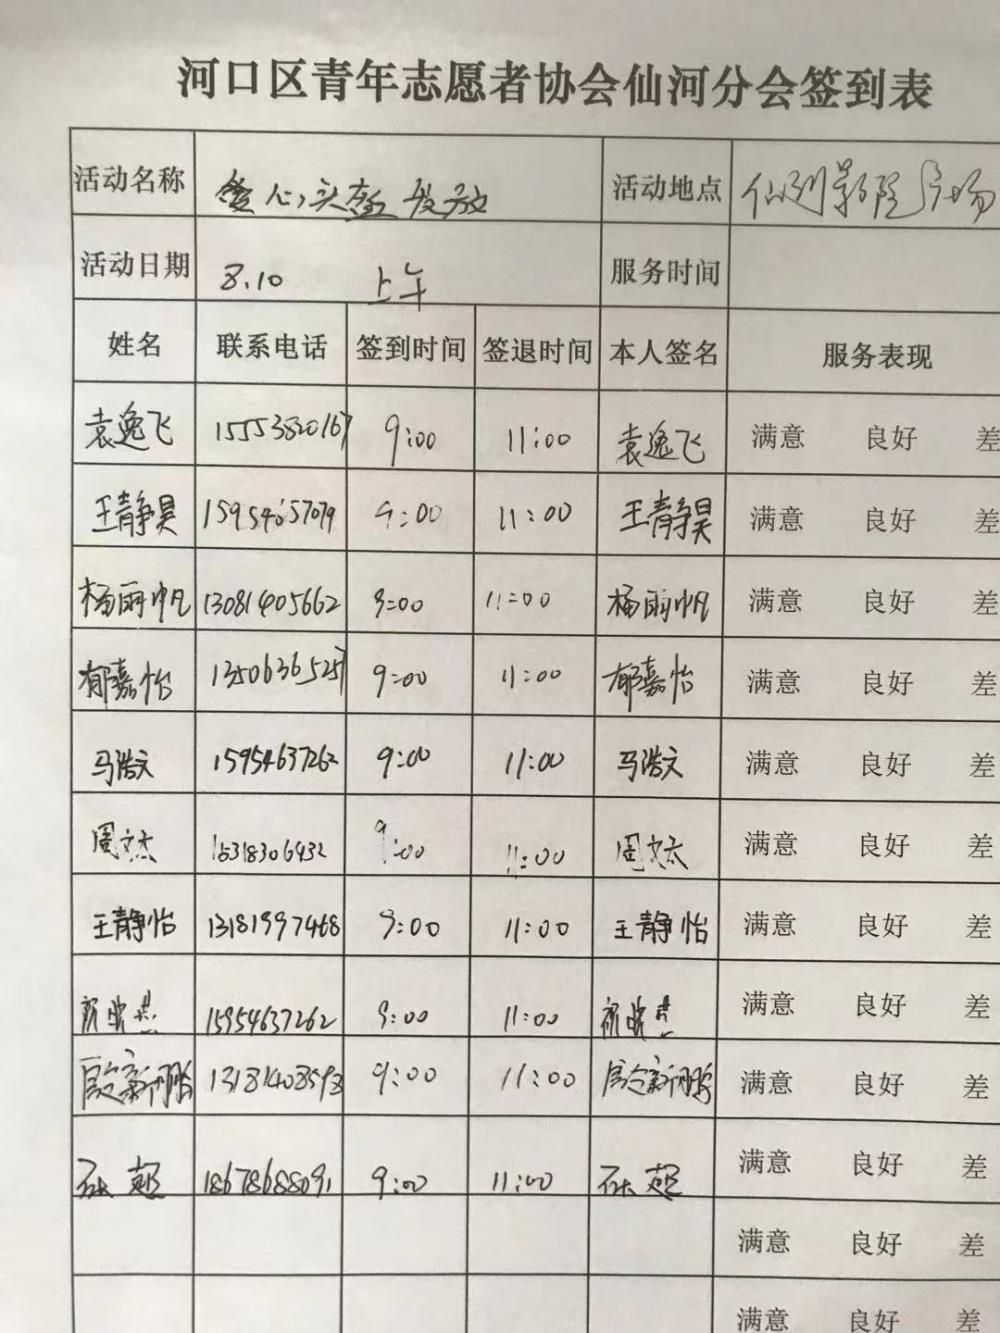 河口区青年志愿者协会仙河分会签到表
活动名称 爱心头盔发放 活动地点 仙河影院广场
活动日期 8.10 上午 服务时间
姓名 联系电话 签到时间 签退时间 本人签名 服务表现
袁逸飞 15553820167 9:00 11:00 袁逸飞 满意 良好 差
王静昊 15954657079 9:00 11:00 王静昊 满意 良好 差
杨丽帆 13081405662 9:00 11:00 杨丽帆 满意 良好 差
郁嘉怡 13506365257 9:00 11:00 郁嘉怡 满意 良好 差
马浩文 15954637262 9:00 11:00 马浩文 满意 良好 差
周文杰 15318306432 9:00 11:00 周文杰 满意 良好 差
王静怡 13181997468 9:00 11:00 王静怡 满意 良好 差
15954637262 9:00 11:00 满意 良好 差
9:00 11:00 满意 良好 差
石超 18678688091 9:00 11:00 石超 满意 良好 差
满意 良好 差
满意 良好 差